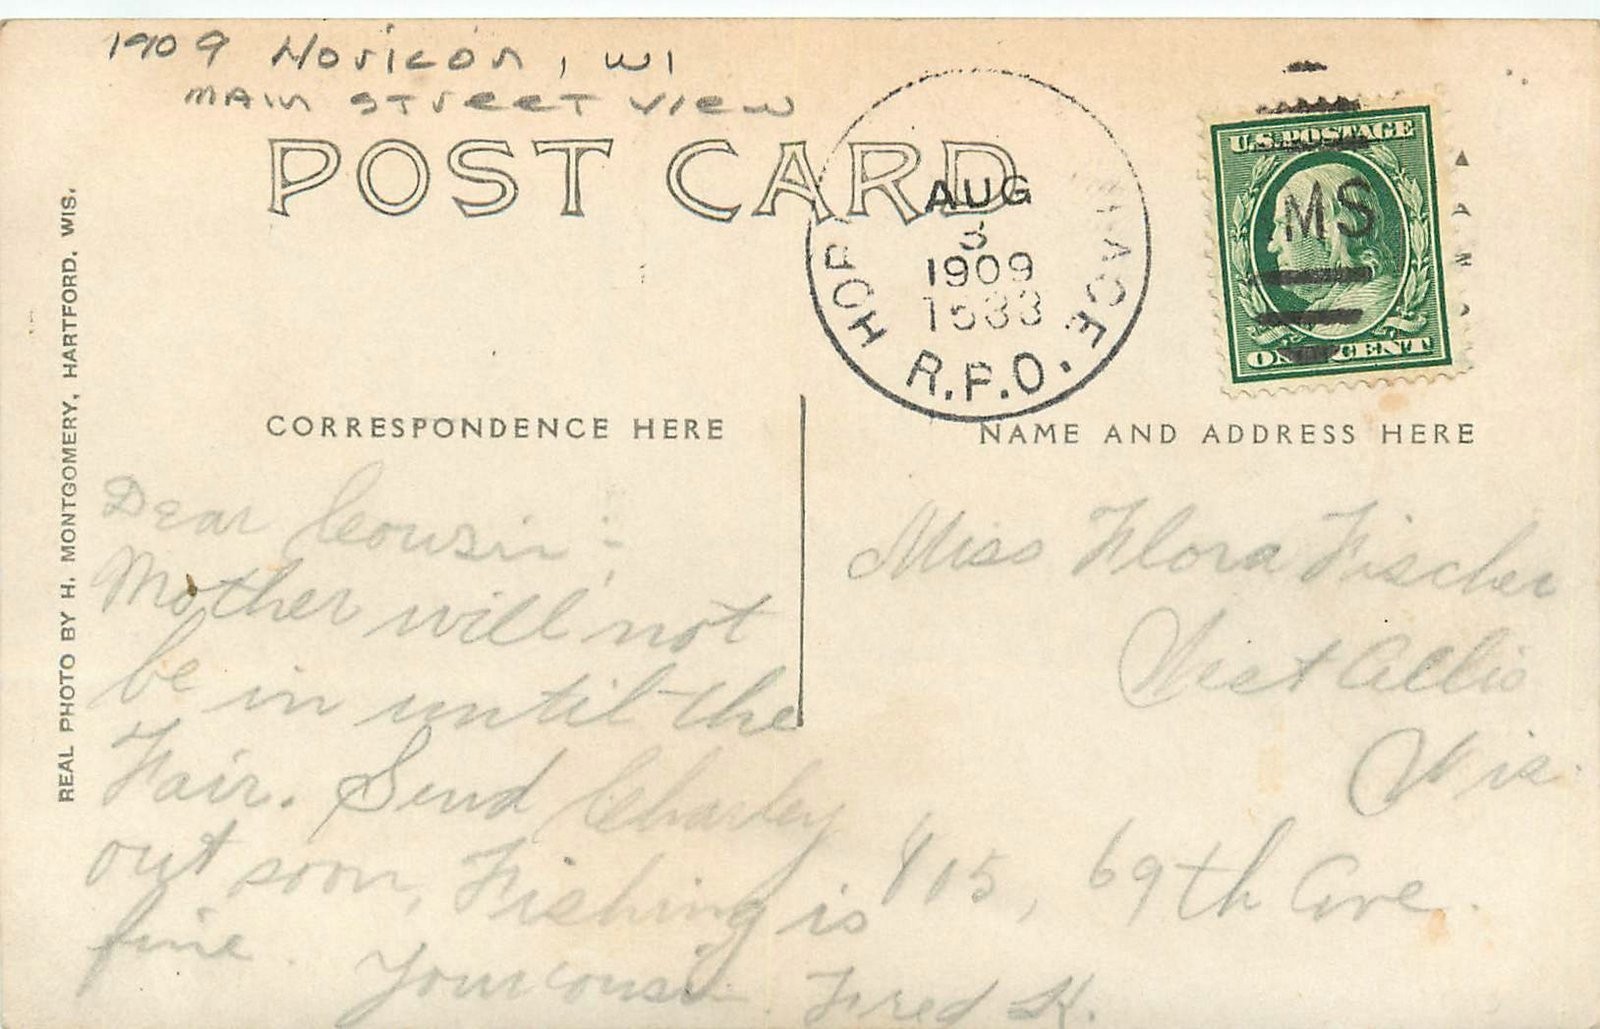 1909 Horicon, WI
MAIN STREET VIEW
POST CARD
HOR
AUG
3
1909
1533
R.P.O.
U.S. POSTAGE
MS
ONE CENT
REAL PHOTO BY H. MONTGOMERY, HARTFORD, WIS.
CORRESPONDENCE HERE
Dear Cousin:
Mother will not
be in until the
Fair. Send Charley
out soon, Fishing is
fine. Your cousin
Fred K.
NAME AND ADDRESS HERE
Miss Flora Fischer
West Allis
Wis.
805, 69th Ave.